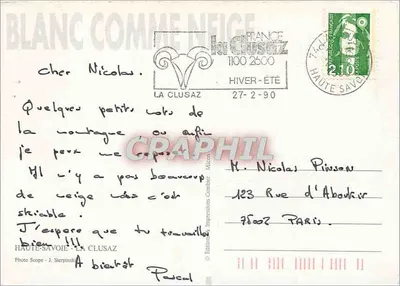 BLANC COMME NEIGE
FRANCE
la Clusaz
1100 2600
HIVER-ÉTÉ
LA CLUSAZ
27-2-90
74
HAUTE SAVOIE
2,10
Cher Nicolas.
Quelques petits mots de
la montagne où enfin
je peux me reposer.
Il n'y a pas beaucoup
de neige mais c'est
skiable.
J'espère que tu travailles
bien !!!
A bientôt
Pascal
HAUTE-SAVOIE - LA CLUSAZ
Photo Scope - J.
CPAPHIL
M. Nicolas Pinson
123 Rue d'Aboukir
75002 PARIS.